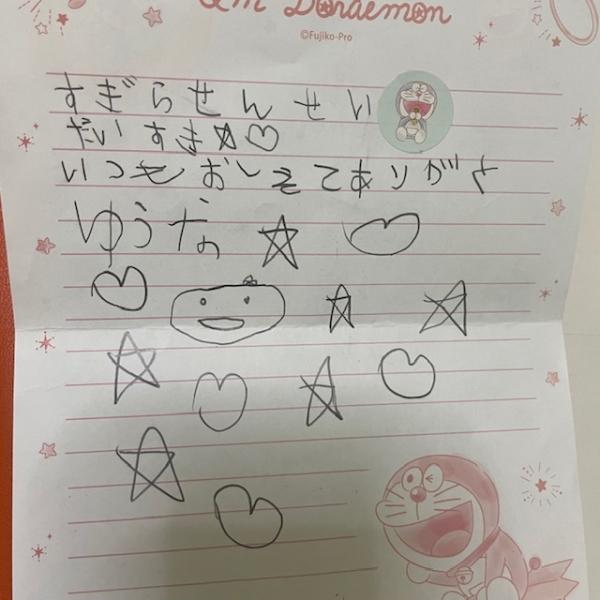 I'm Doraemon
©Fujiko-Pro
すぎらせんせい
だいすき☆♡
いつもおしえてありがと
ゆうな